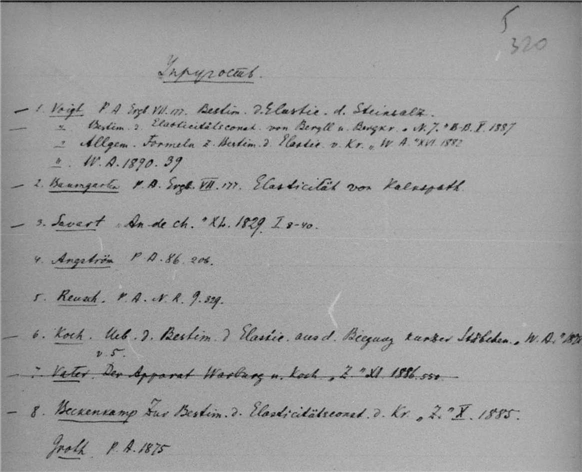 5
320
Упругость.
1. Voigt P A Ergb VII. 177. Bestim. d. Elastic. d. Steinsalz.
" Bestim. d Elasticitätsconst. von Beryll u. Bergkr. „N. J." B.B. V. 1887
" Allgem. Formeln z. Bestim. d. Elastic. v. Kr. „W A." XVI. 1882
" W. A. 1890. 39
2. Baumgarten P. A. Ergb. VII. 177. Elasticität von Kalkspath.
3. Savart „An de ch." XL. 1829. I 8-40.
4. Angström P A. 86. 206.
5. Reusch. P. A. N. R. 9. 329.
6. Koch. Ueb. d. Bestim. d Elastic. aus d. Biegung kurzer Stäbchen. „W A."
v. 5.
7. Vater. Der Apparat Warburg u. Koch „Z" XI 1886. 550
8. Beckenkamp Zur Bestim. d. Elasticitätsconst. d. Kr. „Z." X. 1885.
Groth P. A. 1875